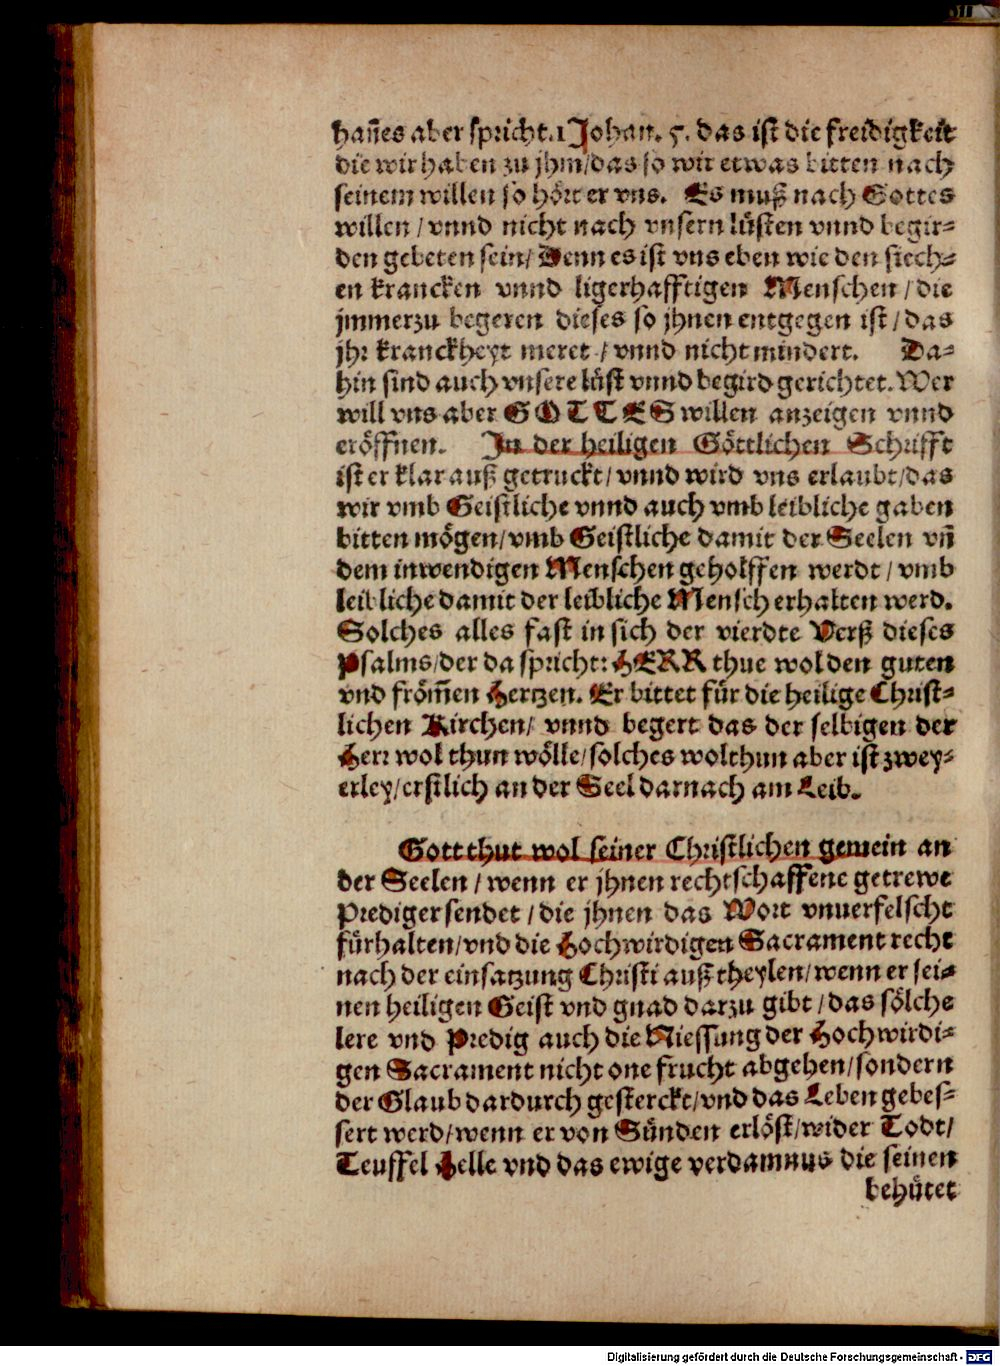 han̄es aber spricht. 1 Johan. 5. das ist die freidigkeit
die wir haben zu jhm/das so wir etwas bitten nach
seinem willen so hört er vns. Es muß nach Gottes
willen / vnnd nicht nach vnsern lüsten vnnd begir-
den gebeten sein/ Denn es ist vns eben wie den siech-
en krancken vnnd ligerhafftigen Menschen / die
jmmerzu begeren dieses so jhnen entgegen ist / das
jhr kranckheyt meret / vnnd nicht mindert. Da-
hin sind auch vnsere lüst vnnd begird gerichtet. Wer
will vns aber GOTTES willen anzeigen vnnd
eröffnen. In der heiligen Göttlichen Schrifft
ist er klar auß getruckt / vnnd wird vns erlaubt/das
wir vmb Geistliche vnnd auch vmb leibliche gaben
bitten mögen/vmb Geistliche damit der Seelen vn̄
dem inwendigen Menschen geholffen werdt / vmb
leibliche damit der leibliche Mensch erhalten werd.
Solches alles fast in sich der vierdte Verß dieses
Psalms/der da spricht: HERR thue wol den guten
vnd fröm̄en Hertzen. Er bittet für die heilige Christ-
lichen Kirchen/ vnnd begert das der selbigen der
Herr wol thun wölle/solches wolthun aber ist zwey-
erley/erstlich an der Seel darnach am Leib.
Gott thut wol seiner Christlichen gemein an
der Seelen / wenn er jhnen rechtschaffene getrewe
Prediger sendet / die jhnen das Wort vnuerfelscht
fürhalten/vnd die Hochwirdigen Sacrament recht
nach der einsatzung Christi auß theylen/wenn er sei-
nen heiligen Geist vnd gnad darzu gibt / das sölche
lere vnd Predig auch die Niessung der Hochwirdi-
gen Sacrament nicht one frucht abgehen/sondern
der Glaub dardurch gesterckt/vnd das Leben gebes-
sert werd/wenn er von Sünden erlöst/wider Todt/
Teuffel Helle vnd das ewige verdamnus die seinen
behütet
Digitalisierung gefördert durch die Deutsche Forschungsgemeinschaft - DFG